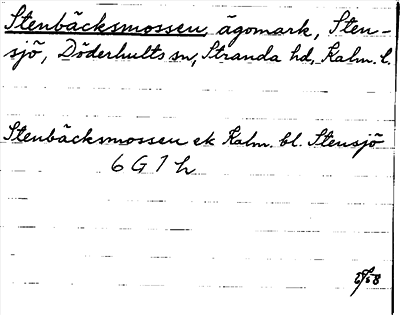 Stenbäcksmossen, ägomark, Sten-
sjö, Döderhults sn, Stranda hd, Kalm. l.
Stenbäcksmossen ek Kalm. bl. Stensjö
6 G 1 h